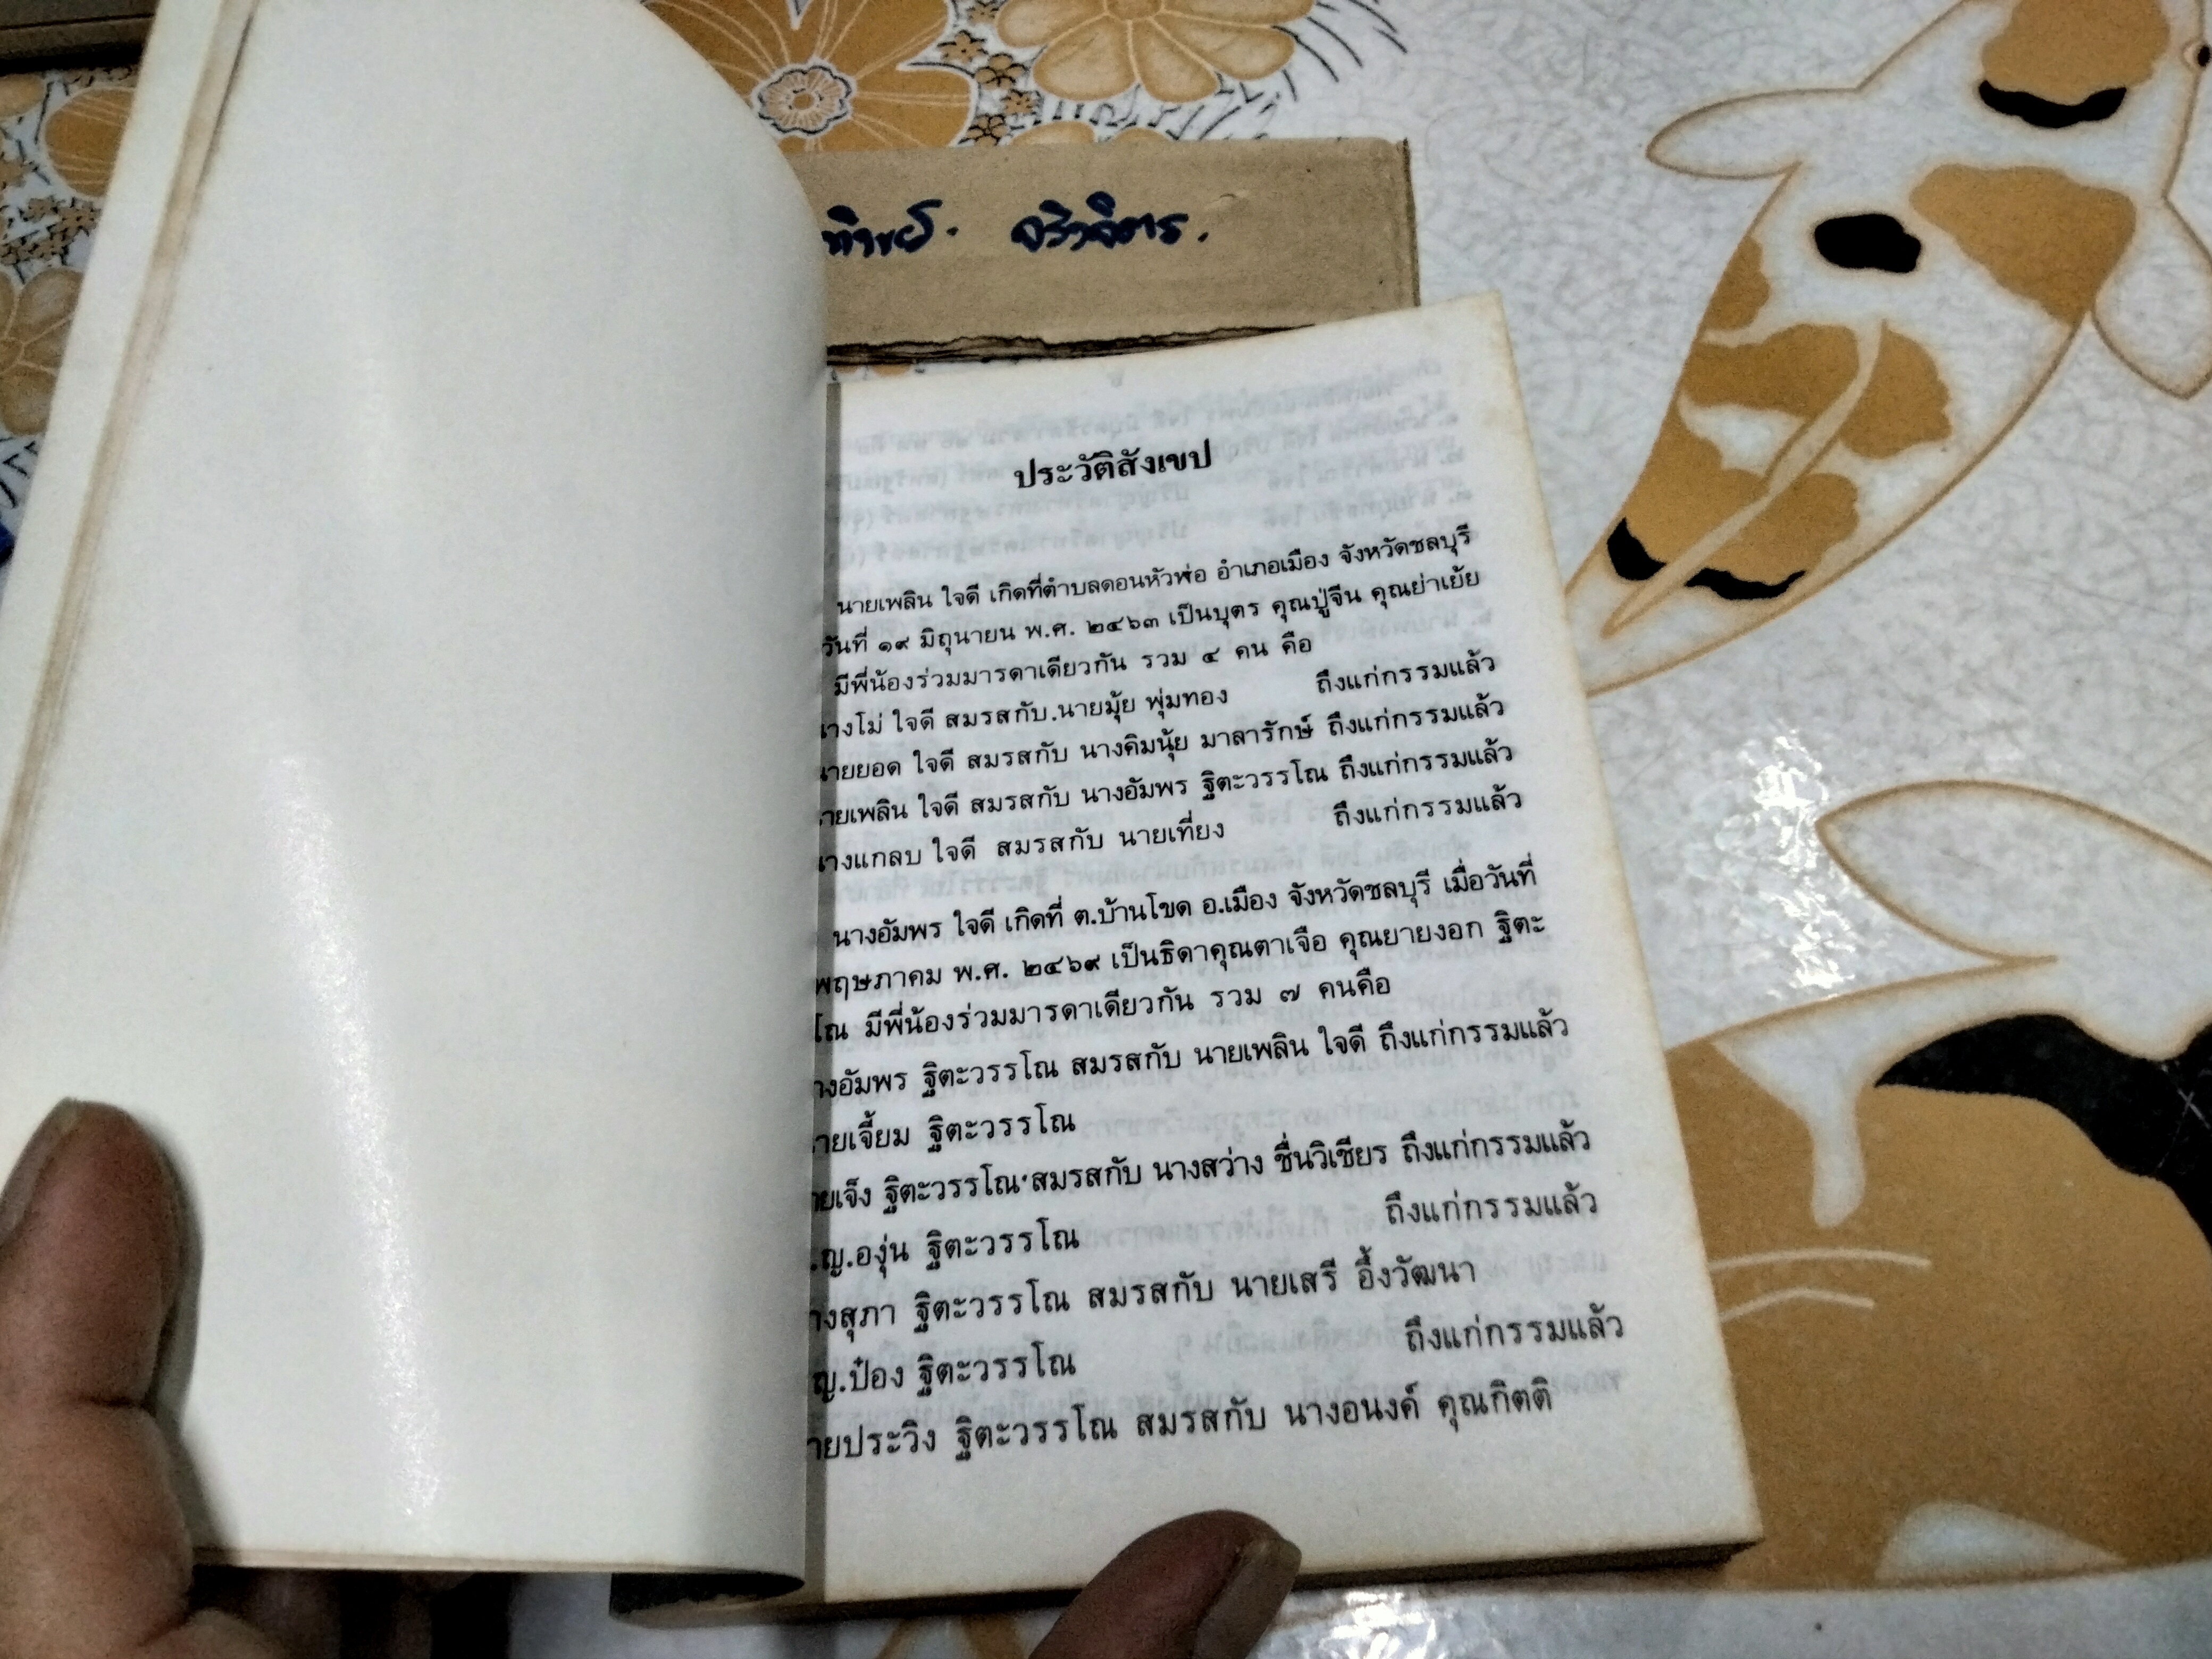 ประวัติสังเขป
นายเพลิน ใจดี เกิดที่ตำบลดอนหัวฬ่อ อำเภอเมือง จังหวัดชลบุรี
วันที่ ๑๙ มิถุนายน พ.ศ. ๒๔๖๓ เป็นบุตร คุณปู่จีน คุณย่าเย้ย
มีพี่น้องร่วมมารดาเดียวกัน รวม ๔ คน คือ
นางโม่ ใจดี สมรสกับ.นายมุ้ย พุ่มทอง ถึงแก่กรรมแล้ว
นายยอด ใจดี สมรสกับ นางคิมนุ้ย มาลารักษ์ ถึงแก่กรรมแล้ว
นายเพลิน ใจดี สมรสกับ นางอัมพร ฐิตะวรรโณ ถึงแก่กรรมแล้ว
นางแกลบ ใจดี สมรสกับ นายเที่ยง ถึงแก่กรรมแล้ว
นางอัมพร ใจดี เกิดที่ ต.บ้านโขด อ.เมือง จังหวัดชลบุรี เมื่อวันที่
พฤษภาคม พ.ศ. ๒๔๖๙ เป็นธิดาคุณตาเจือ คุณยายงอก ฐิตะ
โณ มีพี่น้องร่วมมารดาเดียวกัน รวม ๗ คนคือ
างอัมพร ฐิตะวรรโณ สมรสกับ นายเพลิน ใจดี ถึงแก่กรรมแล้ว
ายเจี้ยม ฐิตะวรรโณ
ายเจ็ง ฐิตะวรรโณ สมรสกับ นางสว่าง ชื่นวิเชียร ถึงแก่กรรมแล้ว
.ญ.องุ่น ฐิตะวรรโณ ถึงแก่กรรมแล้ว
างสุภา ฐิตะวรรโณ สมรสกับ นายเสรี อึ้งวัฒนา
ญ.ป๋อง ฐิตะวรรโณ ถึงแก่กรรมแล้ว
ายประวิง ฐิตะวรรโณ สมรสกับ นางอนงค์ คุณกิตติ